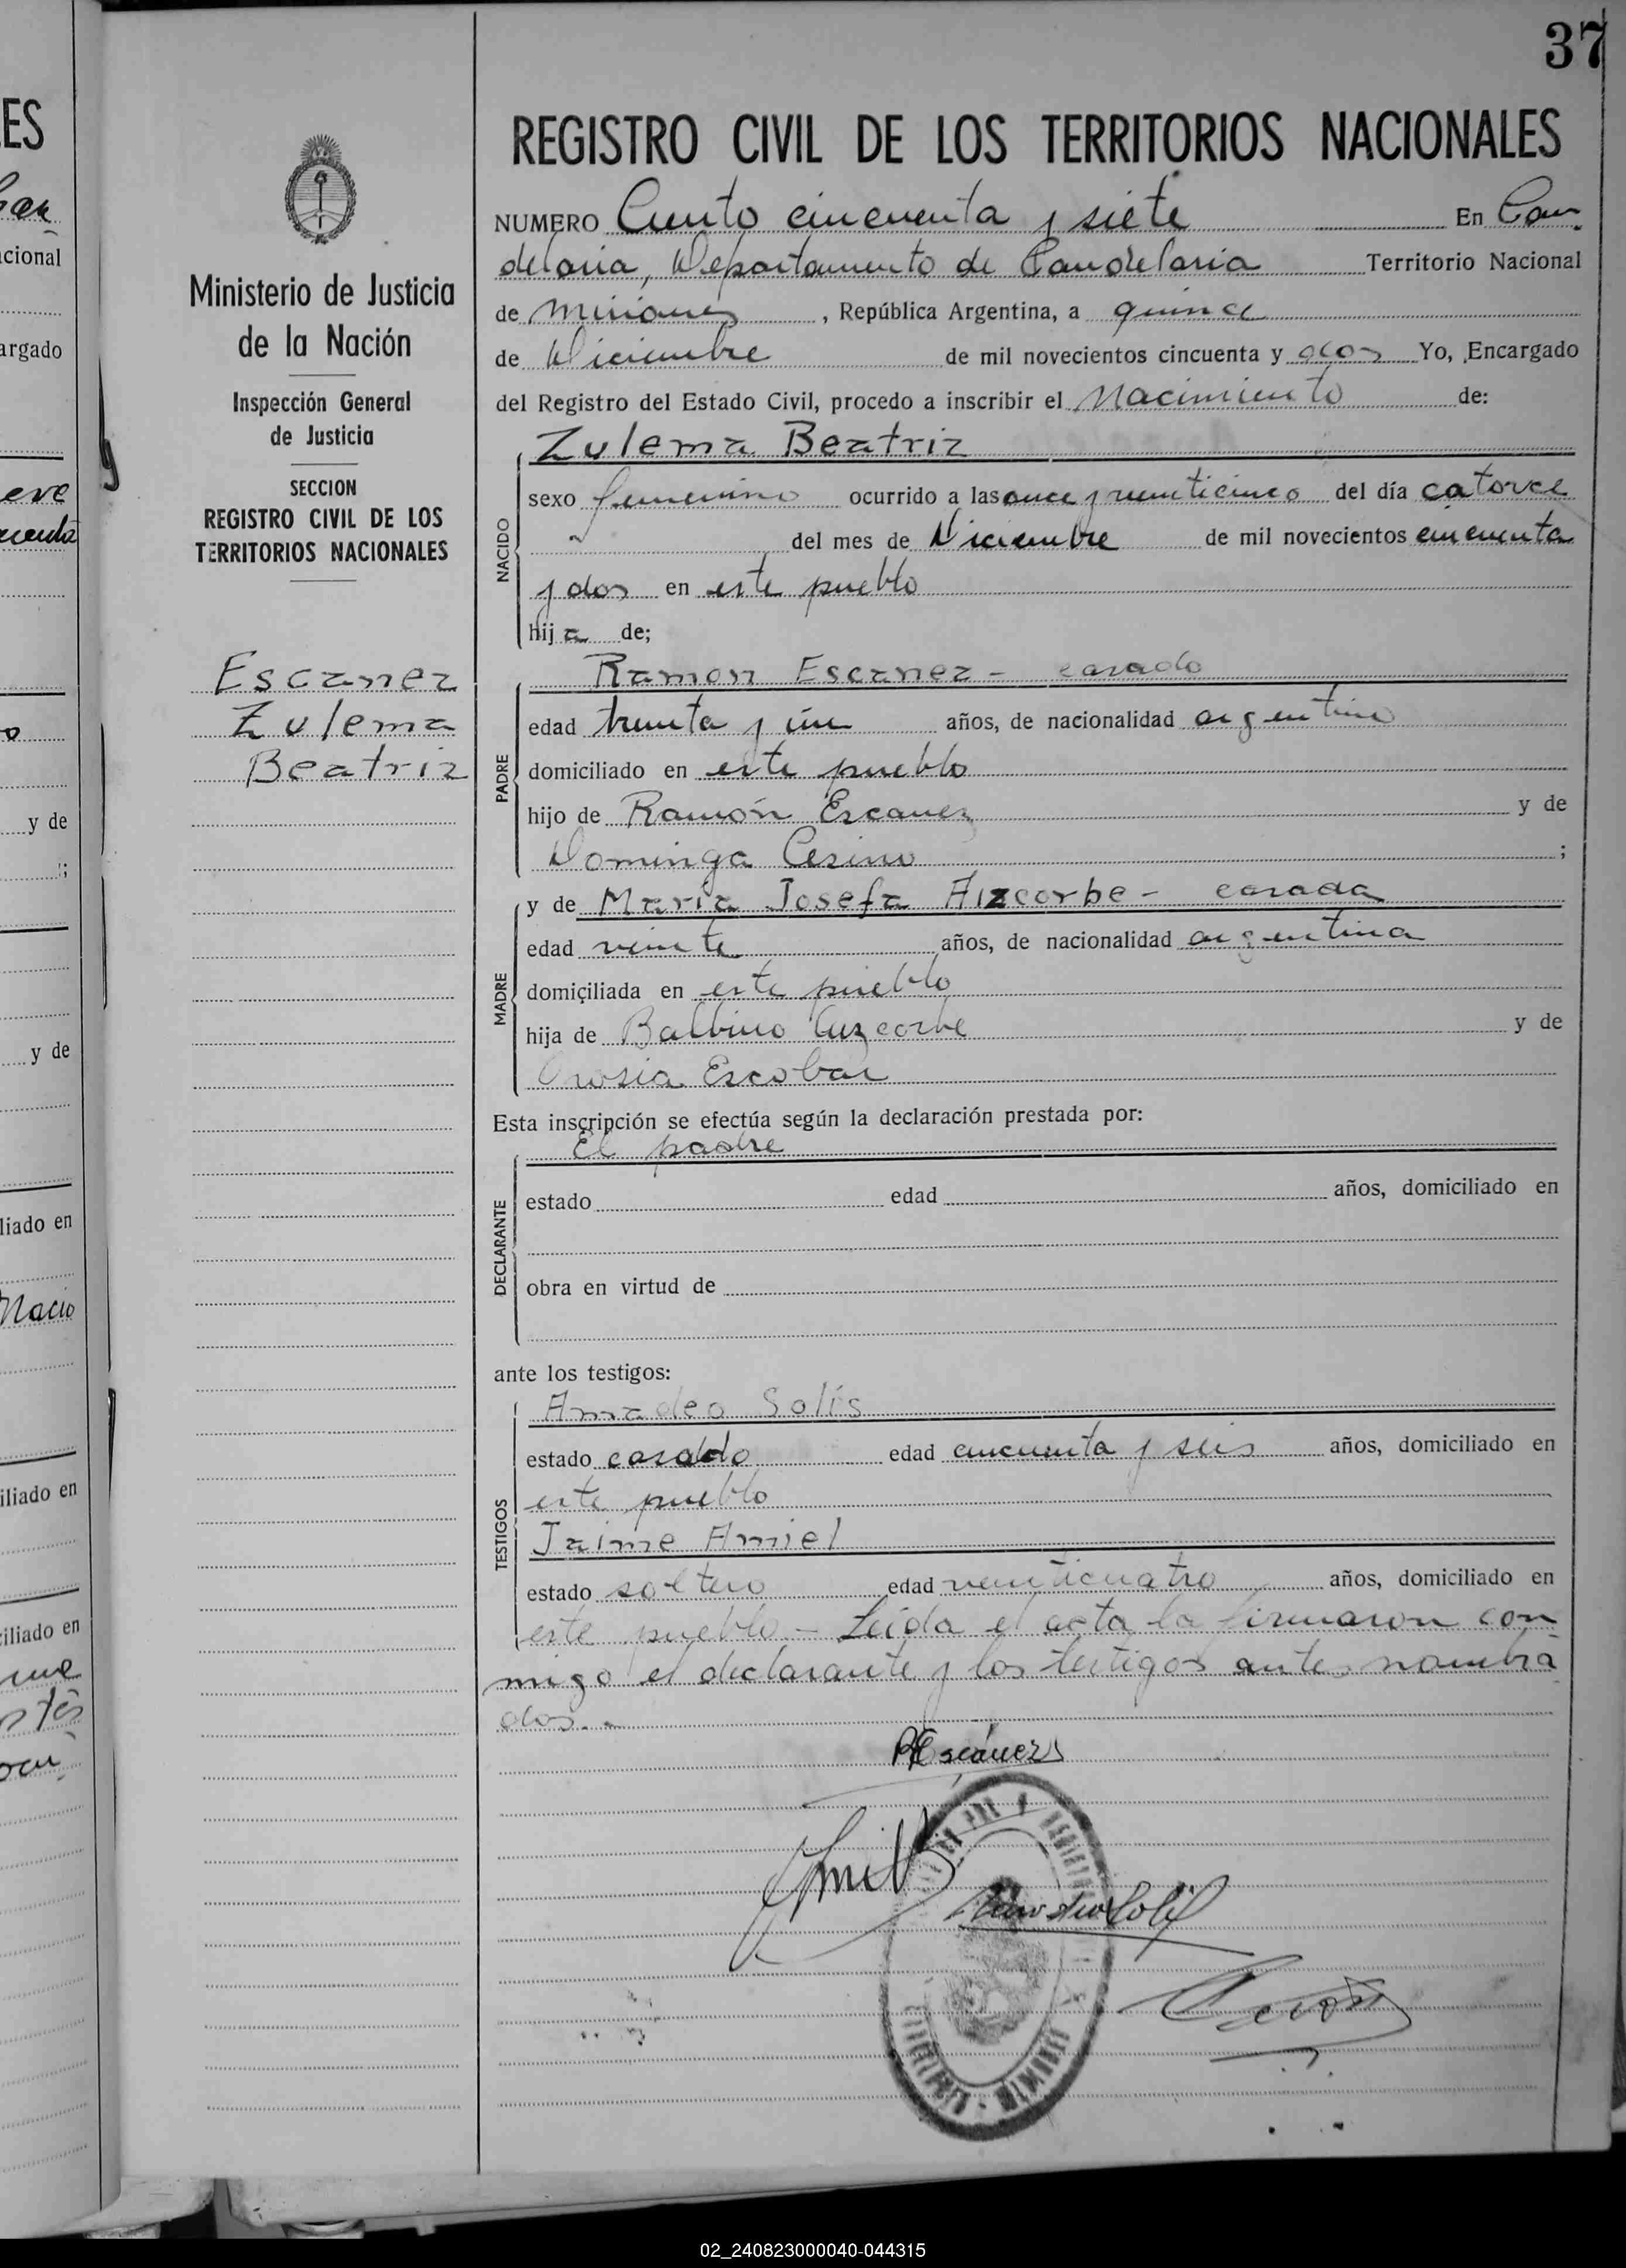 37
REGISTRO CIVIL DE LOS TERRITORIOS NACIONALES
NUMERO Ciento cincuenta y siete En Can
delaria, Departamento de Candelaria Territorio Nacional
de Misiones, República Argentina, a quince
de Diciembre de mil novecientos cincuenta y dos Yo, Encargado
del Registro del Estado Civil, procedo a inscribir el Nacimiento de:
NACIDO
Zulema Beatriz
sexo femenino ocurrido a las once y veinticinco del día catorce
del mes de Diciembre de mil novecientos cincuenta
y dos en este pueblo
hija de;
PADRE
Ramon Escanez - casado
edad treinta y un años, de nacionalidad argentino
domiciliado en este pueblo
hijo de Ramón Escanez y de
Dominga Cesino ;
MADRE
y de Maria Josefa Aizcorbe - casada
edad veinte años, de nacionalidad argentina
domiciliada en este pueblo
hija de Balbino Aizcorbe y de
Orosia Escobar
Esta inscripción se efectúa según la declaración prestada por:
DECLARANTE
El padre
estado edad años, domiciliado en
obra en virtud de
ante los testigos:
TESTIGOS
Amadeo Solís
estado casado edad cincuenta y seis años, domiciliado en
este pueblo
Jaime Amiel
estado soltero edad veinticuatro años, domiciliado en
este pueblo - Leída el acta la firmaron con
migo el declarante y los testigos antes nombra
dos. -
REscánez
Amadeo Solís
Ministerio de Justicia
de la Nación
Inspección General
de Justicia
SECCION
REGISTRO CIVIL DE LOS
TERRITORIOS NACIONALES
Escanez
Zulema
Beatriz
ES
cional
argado
y de
y de
liado en
iliado en
iliado en
02_240823000040-044315